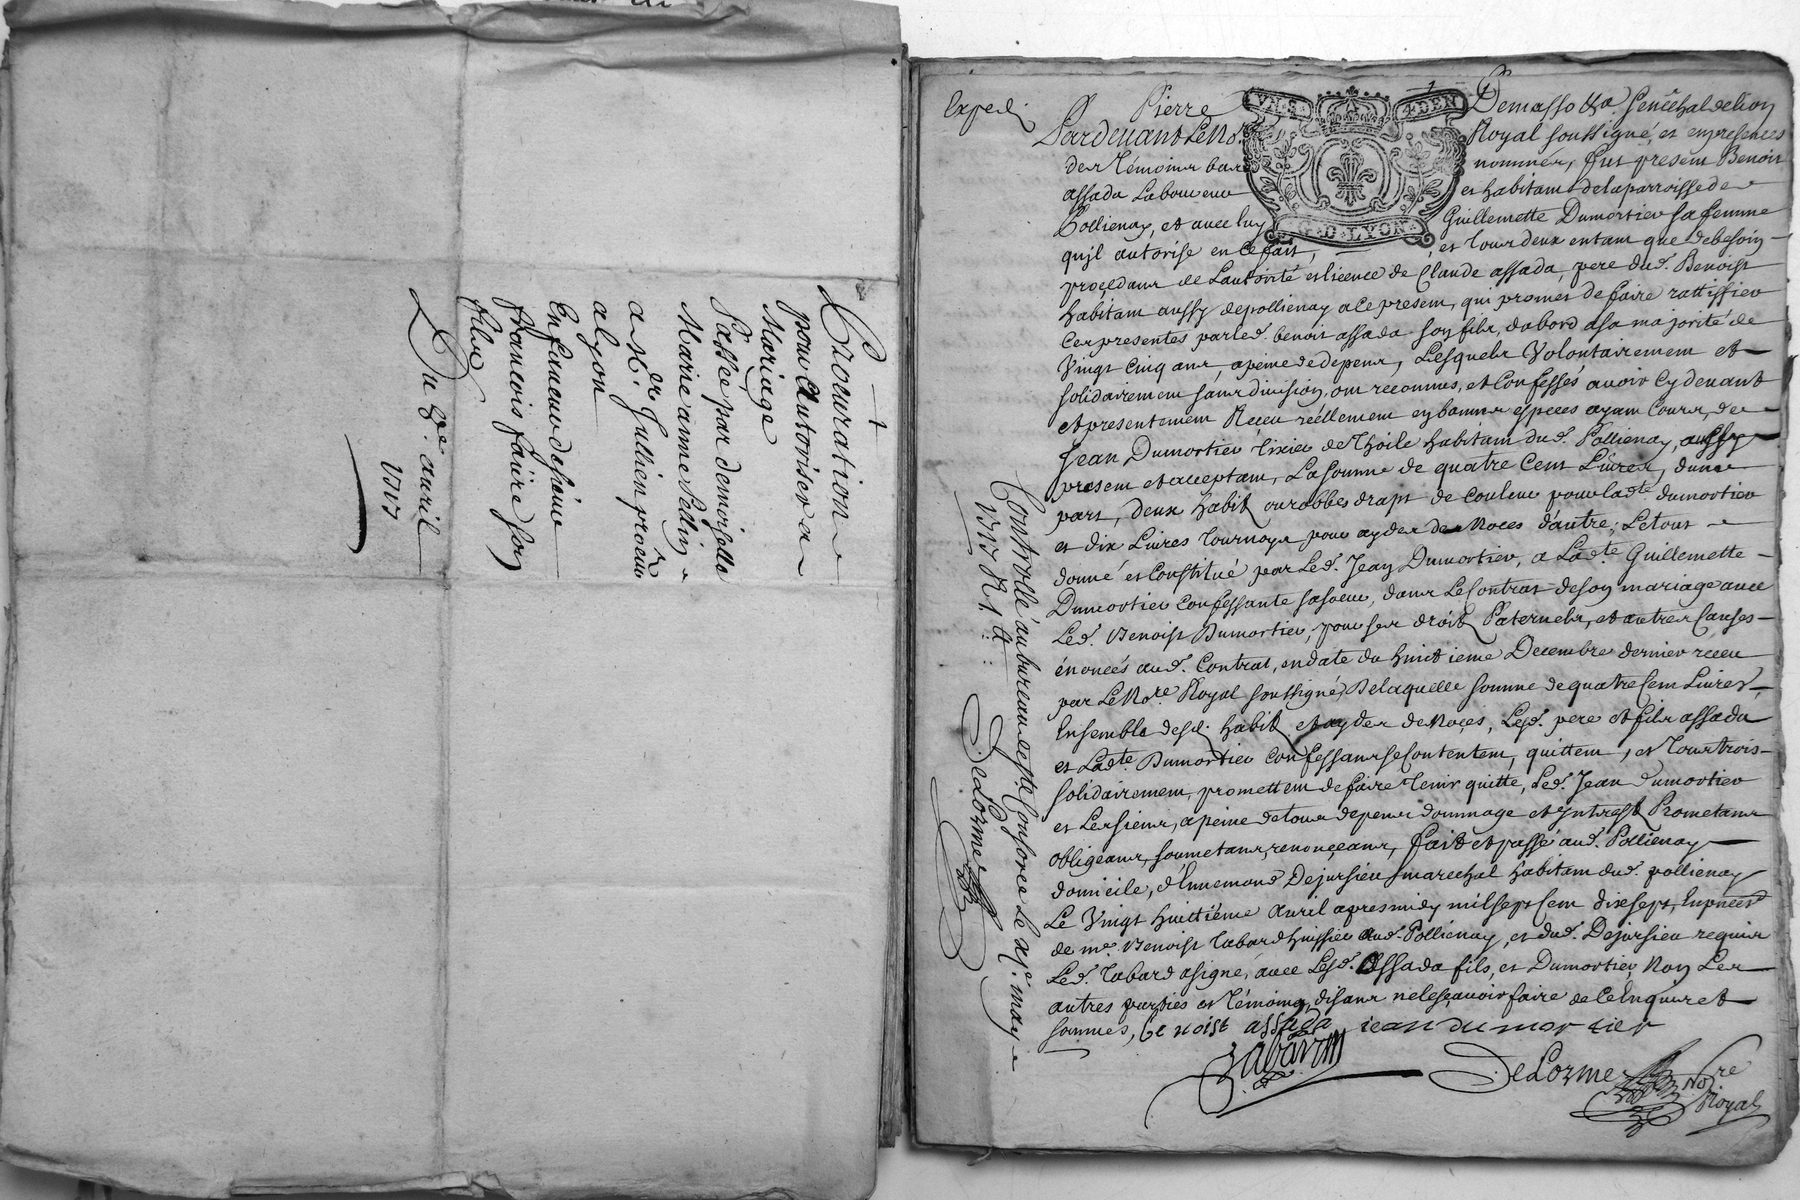 Procuration
pour Autoriser un
Mariage
Passée par demoiselle
Marie anne
a Mr. Jullien procur
a lyon
En faveur de sieur
francois faure son
filz
Du 8e. avril
1717
Exped.
Pierre Demasso &a Senêchal de lion
Pardevant Le No. Royal soussigné et en presences
des Témoins bas nommés, fut present Benoist
assada Laboureur et habitant de la parroisse de
Pollienay, et avec luy Guillemette Dumortier sa femme
qu'jl autorise en ce fait, et tous deux entant que de besoin
procedant de L'autorité et licence de Claude assada, pere dud. Benoist
habitant aussy de pollienay a ce present, qui promet de faire rattiffier
Ces presentes par led. benoist assada son fils, dabord a sa majorité de
Vingt Cinq ans, a peine de depens, Lesquels Volontairement et
solidairement sans division, ont reconnus, et Confessés avoir Cy devant
et presentement Receu réellement en bonnes especes ayant Cours, de
Jean Dumortier Tixier de Thoile habitant dud. Pollienay, aussy
present et acceptant, La somme de quatre Cent Livres, dune
part, deux habits ou robbes drapt de Couleur pour lad.te dumortier
et dix Livres Tournoys pour ayder de Noces d'autre; Le tout
donné et Constitué par Led. Jean Dumortier, a Lad.te Guillemette
Dumortier Confessante sa soeur, dans Le Contrat de son mariage avec
Led. Benoist Dumortier, pour ses droits Paternels, et autres Causes
énoncés aud. Contrat, en date du huictieme Decembre dernier receu
par Le No.re Royal soussigné, De laquelle somme de quatre Cent Livres,
Ensemble desd. habits et ayder de Noçes, Lesd. pere et fils assada
et Lad.te Dumortier Confessants se Contentent, quittent, et Tous trois
solidairement, promettent de faire Tenir quitte, Led. Jean Dumortier
et Les siens, a peine de tous depens dommage et jntrests Prometants
obligeants, soumetants, renonçeants, fait et passé aud. Pollienay
domicile, d'Ennemond Dejussieu marechal habitant dud. pollienay
Le Vingt huictiéme Avril apres midy mil sept Cent dix sept, En pnces
de me. Benoist Tabard huissier aud. Pollienay, et dud. Dejussieu requis
Led. Tabard a signé, avec Lesd. Assada fils, et Dumortier, Non Les
autres parties et Témoins, disants ne le sçavoir faire de ce Enquis et
sommés, benoist assada jean du mor tier
Tabard
DeLorme No.re
Royal
Controllé au bureau de Ste Consorce Le xje. may
1717 R.
DeLorme
VN · S · 4 DEN
G · D · LYON